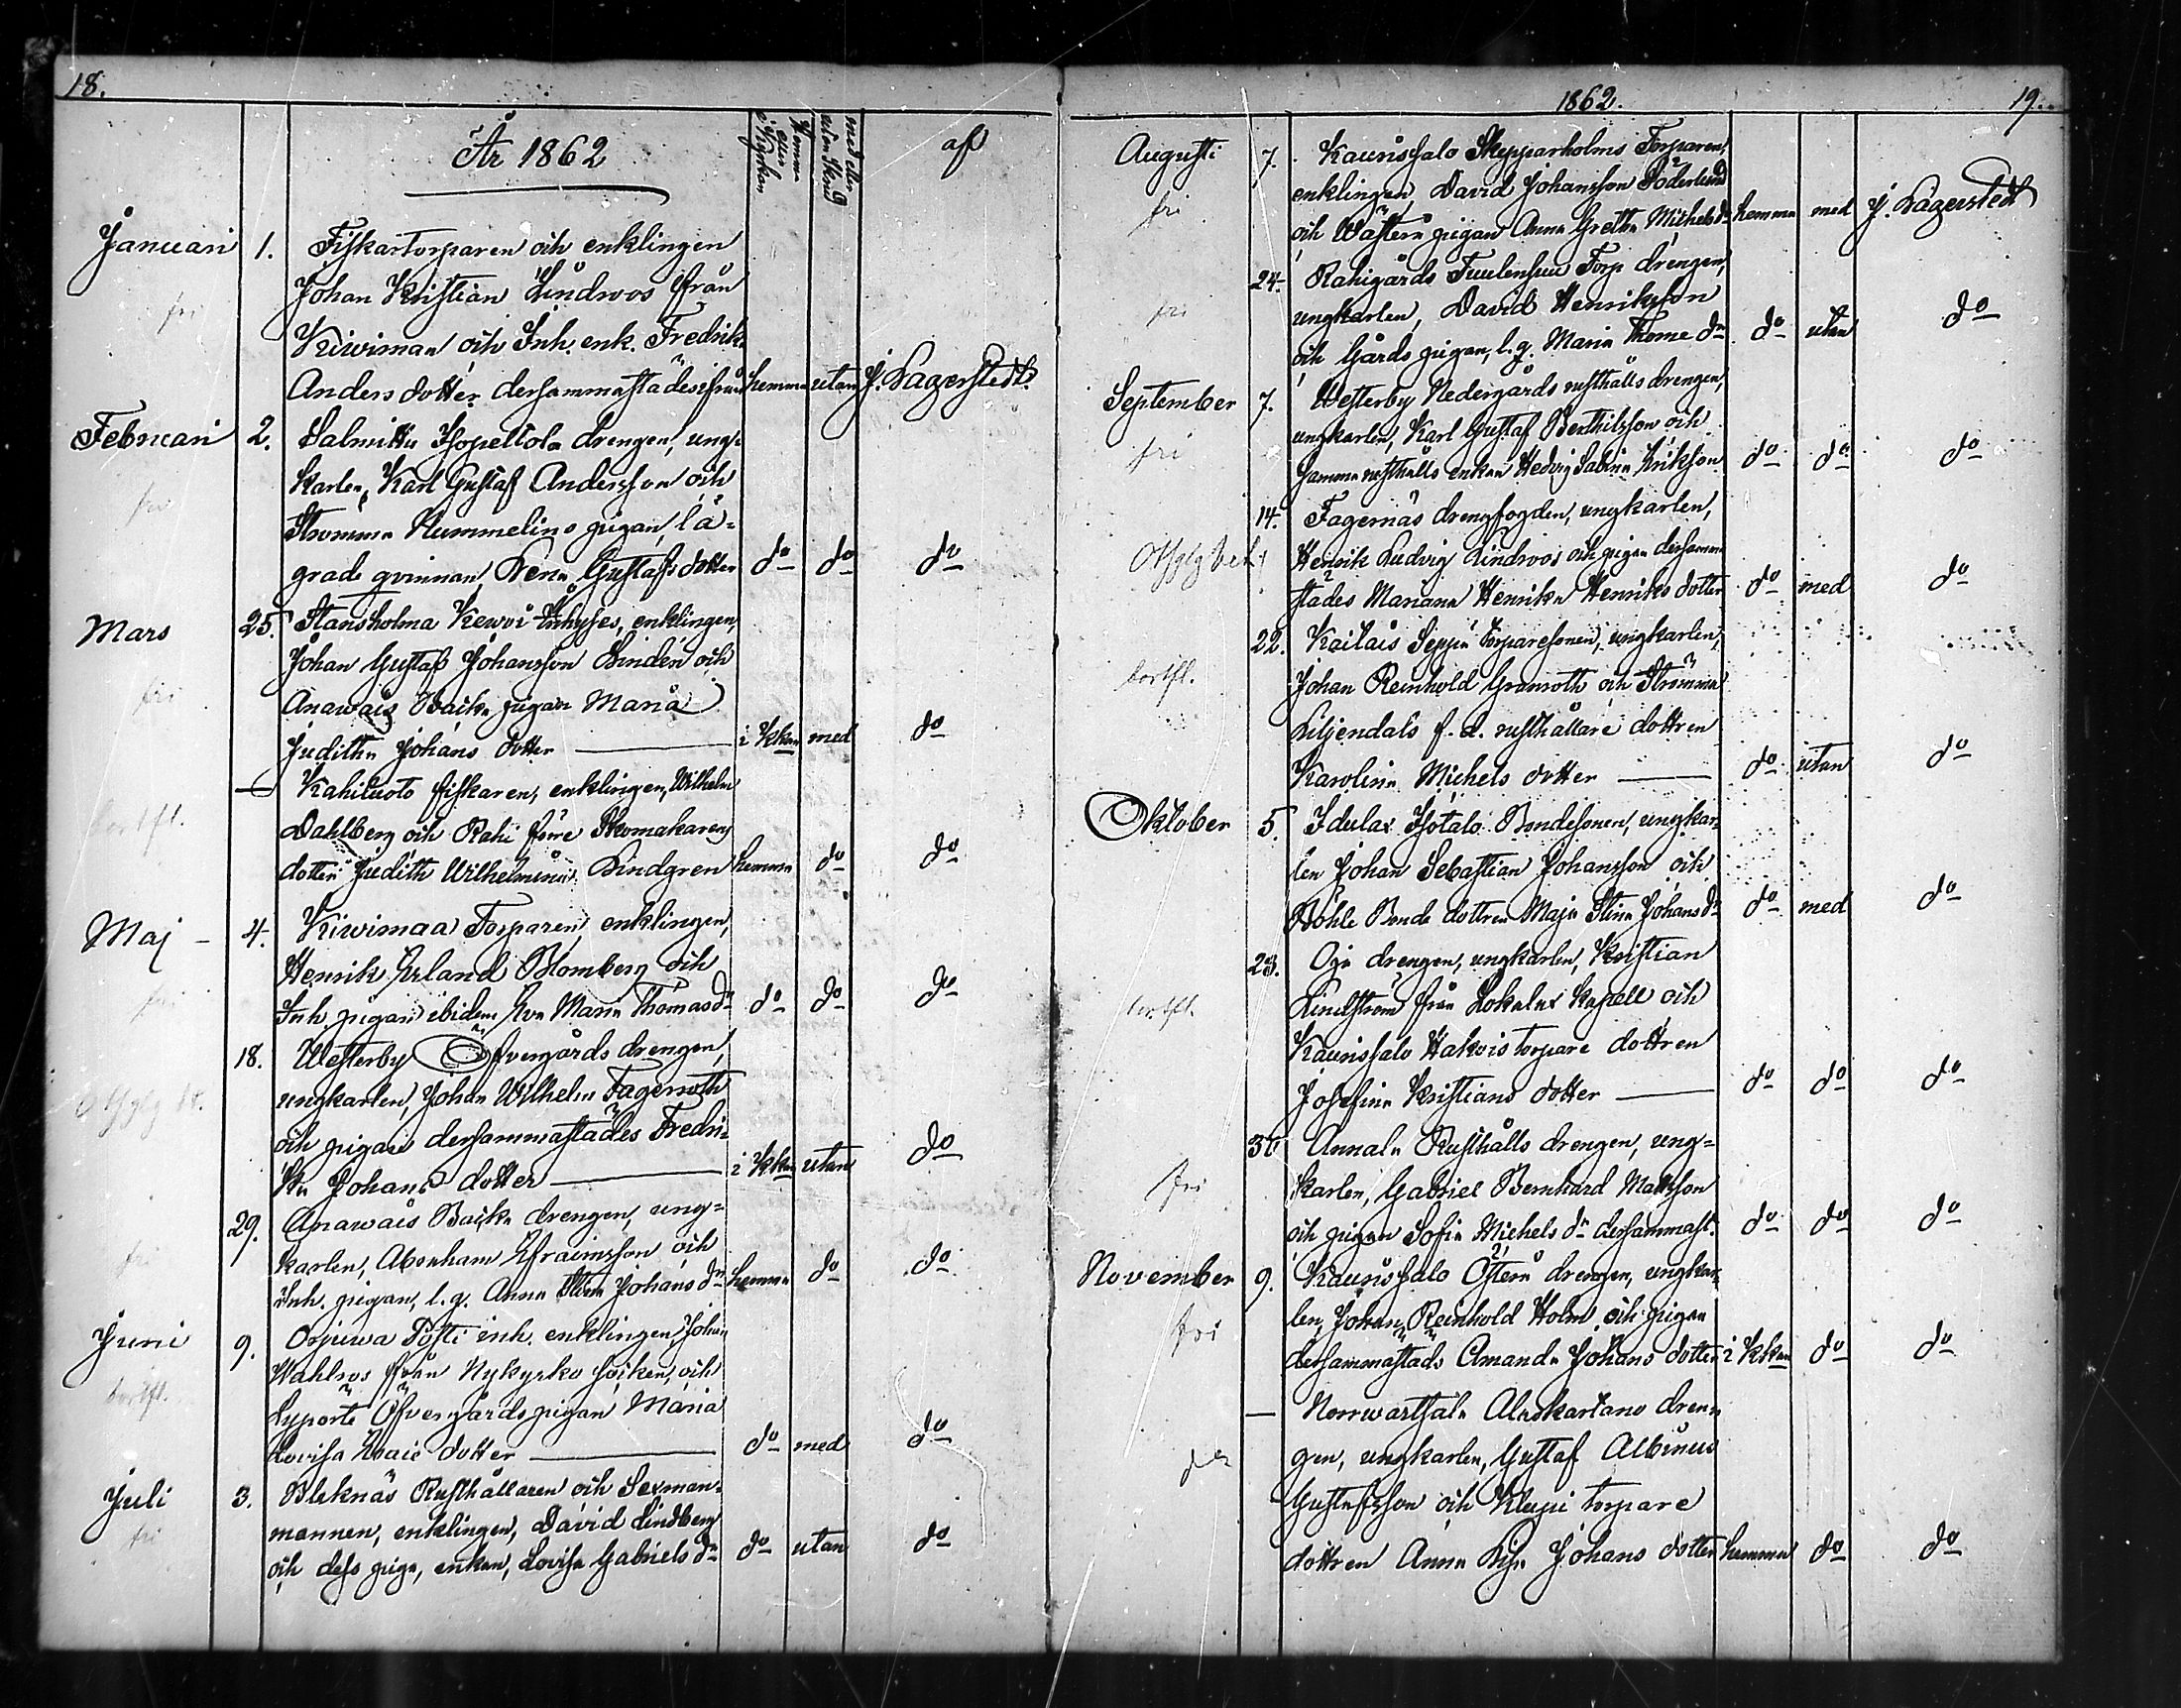 18.
År 1862
i Kyrkan eller hemma
med eller utan
af
Januari 1. Fiskartorparen och enklingen
fri Johan Kristian Lindroos från
Kiwimaa och Inh. enk. Fredrika
Anders dotter dersammastädes ifrån hemma utan J. Lagerstedt.
Februari 2. Salmitta Isopeltola drengen, ung-
fri karlen, Karl Gustaf Andersson och
Stromma Nummelins pigan, lä-
grade qvinnan, Lena Gustafs dotter do do do
Mars 25. Hansholma Kewoi Inhyses, enklingen,
Johan Gustaf Johansson Linden och
fri Anawais Backa pigan Maria
Juditha Johans dotter i kkan med do
— Kahiluoto fiskaren, enklingen, Wilhelm
bortfl. Dahlberg och Rahi förre Skomakaren
dotter Judith Wilhelmina Lindgren hemma do do
Maj 4. Kiwimaa Torparen, enklingen,
Henrik Erland Blomberg och
fri Inh. pigan ibidem Eva Maria Thomas dr do do do
18. Westerby Öfvergårds drengen,
ungkarlen, Johan Wilhelm Fagerroth
och pigan dersammastädes Fredri-
ka Johans dotter i kkan utan do
29. Anawais Backa drengen, ung-
fri karlen, Abraham Efraimsson och
Inh. pigan, l.q. Anna Stina Johans dr hemma do do
Juni 9. Osjuwa Tysti inh. enklingen, Johan
bortfl. Wahlroos från Nykyrko socken, och
Lyperte Öfvergårds pigan Maria
Lovisa Isaks dotter do med do
Juli 3. Bleknäs Rusthållaren och Sexman-
fri mannen, enklingen, David Lindberg
och dess piga, enkan, Lovisa Gabriels dr do utan do
1862.
19.
Augusti 7. Kaurissalo Skepparholms Torparen,
enklingen, David Johansson Söderlund
fri och Wästerå pigan Anna Gretha Michels dr hemma med J. Lagerstedt
24. Rahigårds Tuulensuu Torp drengen,
fri ungkarlen, David Henriksson
och Gårds pigan, l.q. Maria Thome dr do utan do
September 7. Westerby Nedergårds rusthålls drengen,
ungkarlen, Karl Gustaf Berthilsson och
fri samma rusthålls enkan Hedvig Sabina Eriksson do do do
14. Fagernäs drengfogden, ungkarlen,
Henrik Ludvig Lindroos och pigan dersamma-
städes Mariana Henrika Henriks dotter do med do
22. Kailais Seppä Torparesonen, ungkarlen,
bortfl. Johan Reinhold Granroth och Strömma
Liljendals f. d. rusthållare dottren
Karolina Michels dotter do utan do
Oktober 5. Idula Isotalo Bondesonen, ungkar-
len Johan Sebastian Johansson och
Böhle Bonde dottren Maja Stina Johans dr do med do
23. Oja drengen, ungkarlen, Kristian
bortfl. Lindström från Lokalax Kapell och
Kaurissalo Hakois torpare dottren
Josefina Kristians dotter do do do
30 Annala Rusthålls drengen, ung-
fri karlen, Gabriel Bernhard Mattsson
och pigan Sofia Michels dr dersammast. do do do
November 9. Kaurissalo Österå drengen, ungkar-
fri len, Johan Reinhold Holm och pigan
dersammastäds Amanda Johans dotter i kkan do do
— Norrwarthala Alaskartano dren-
gen, ungkarlen, Gustaf Albinus
Gustafsson och Klupi torpare
dottren Anna Lisa Johans dotter hemma do do